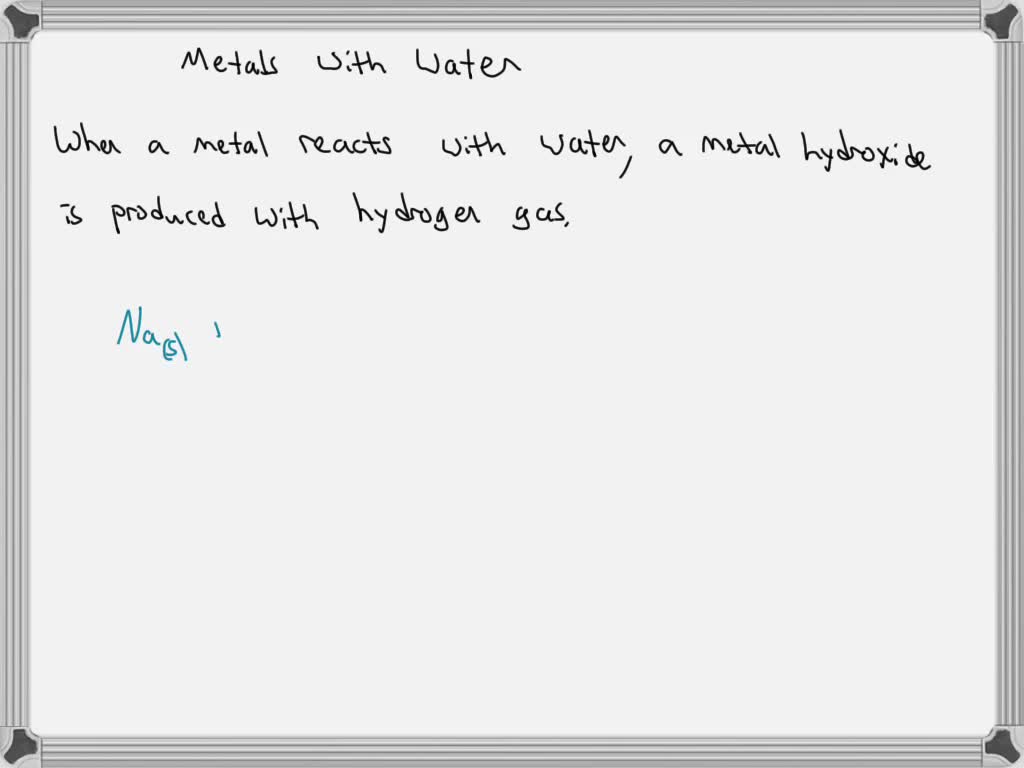 Metals with Water
When a metal reacts with water, a metal hydroxide
is produced with hydrogen gas.
Na(s)